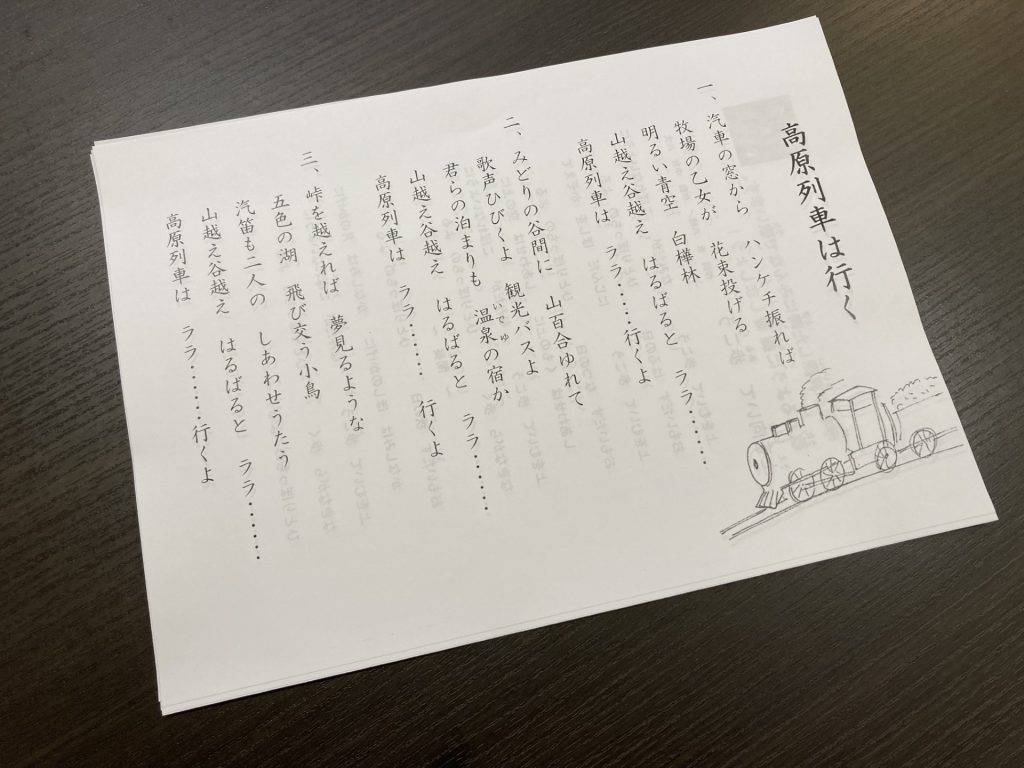 高原列車は行く
一、汽車の窓から　ハンケチ振れば
牧場の乙女が　花束投げる
明るい青空　白樺林
山越え谷越え　はるばると　ララ……
高原列車は　ララ……行くよ
二、みどりの谷間に　山百合ゆれて
歌声ひびくよ　観光バスよ
君らの泊まりも　温泉の宿か
いでゆ
山越え谷越え　はるばると　ララ……
高原列車は　ララ……　行くよ
三、峠を越えれば　夢見るような
五色の湖　飛び交う小鳥
汽笛も二人の　しあわせうたう
山越え谷越え　はるばると　ララ……
高原列車は　ララ……行くよ